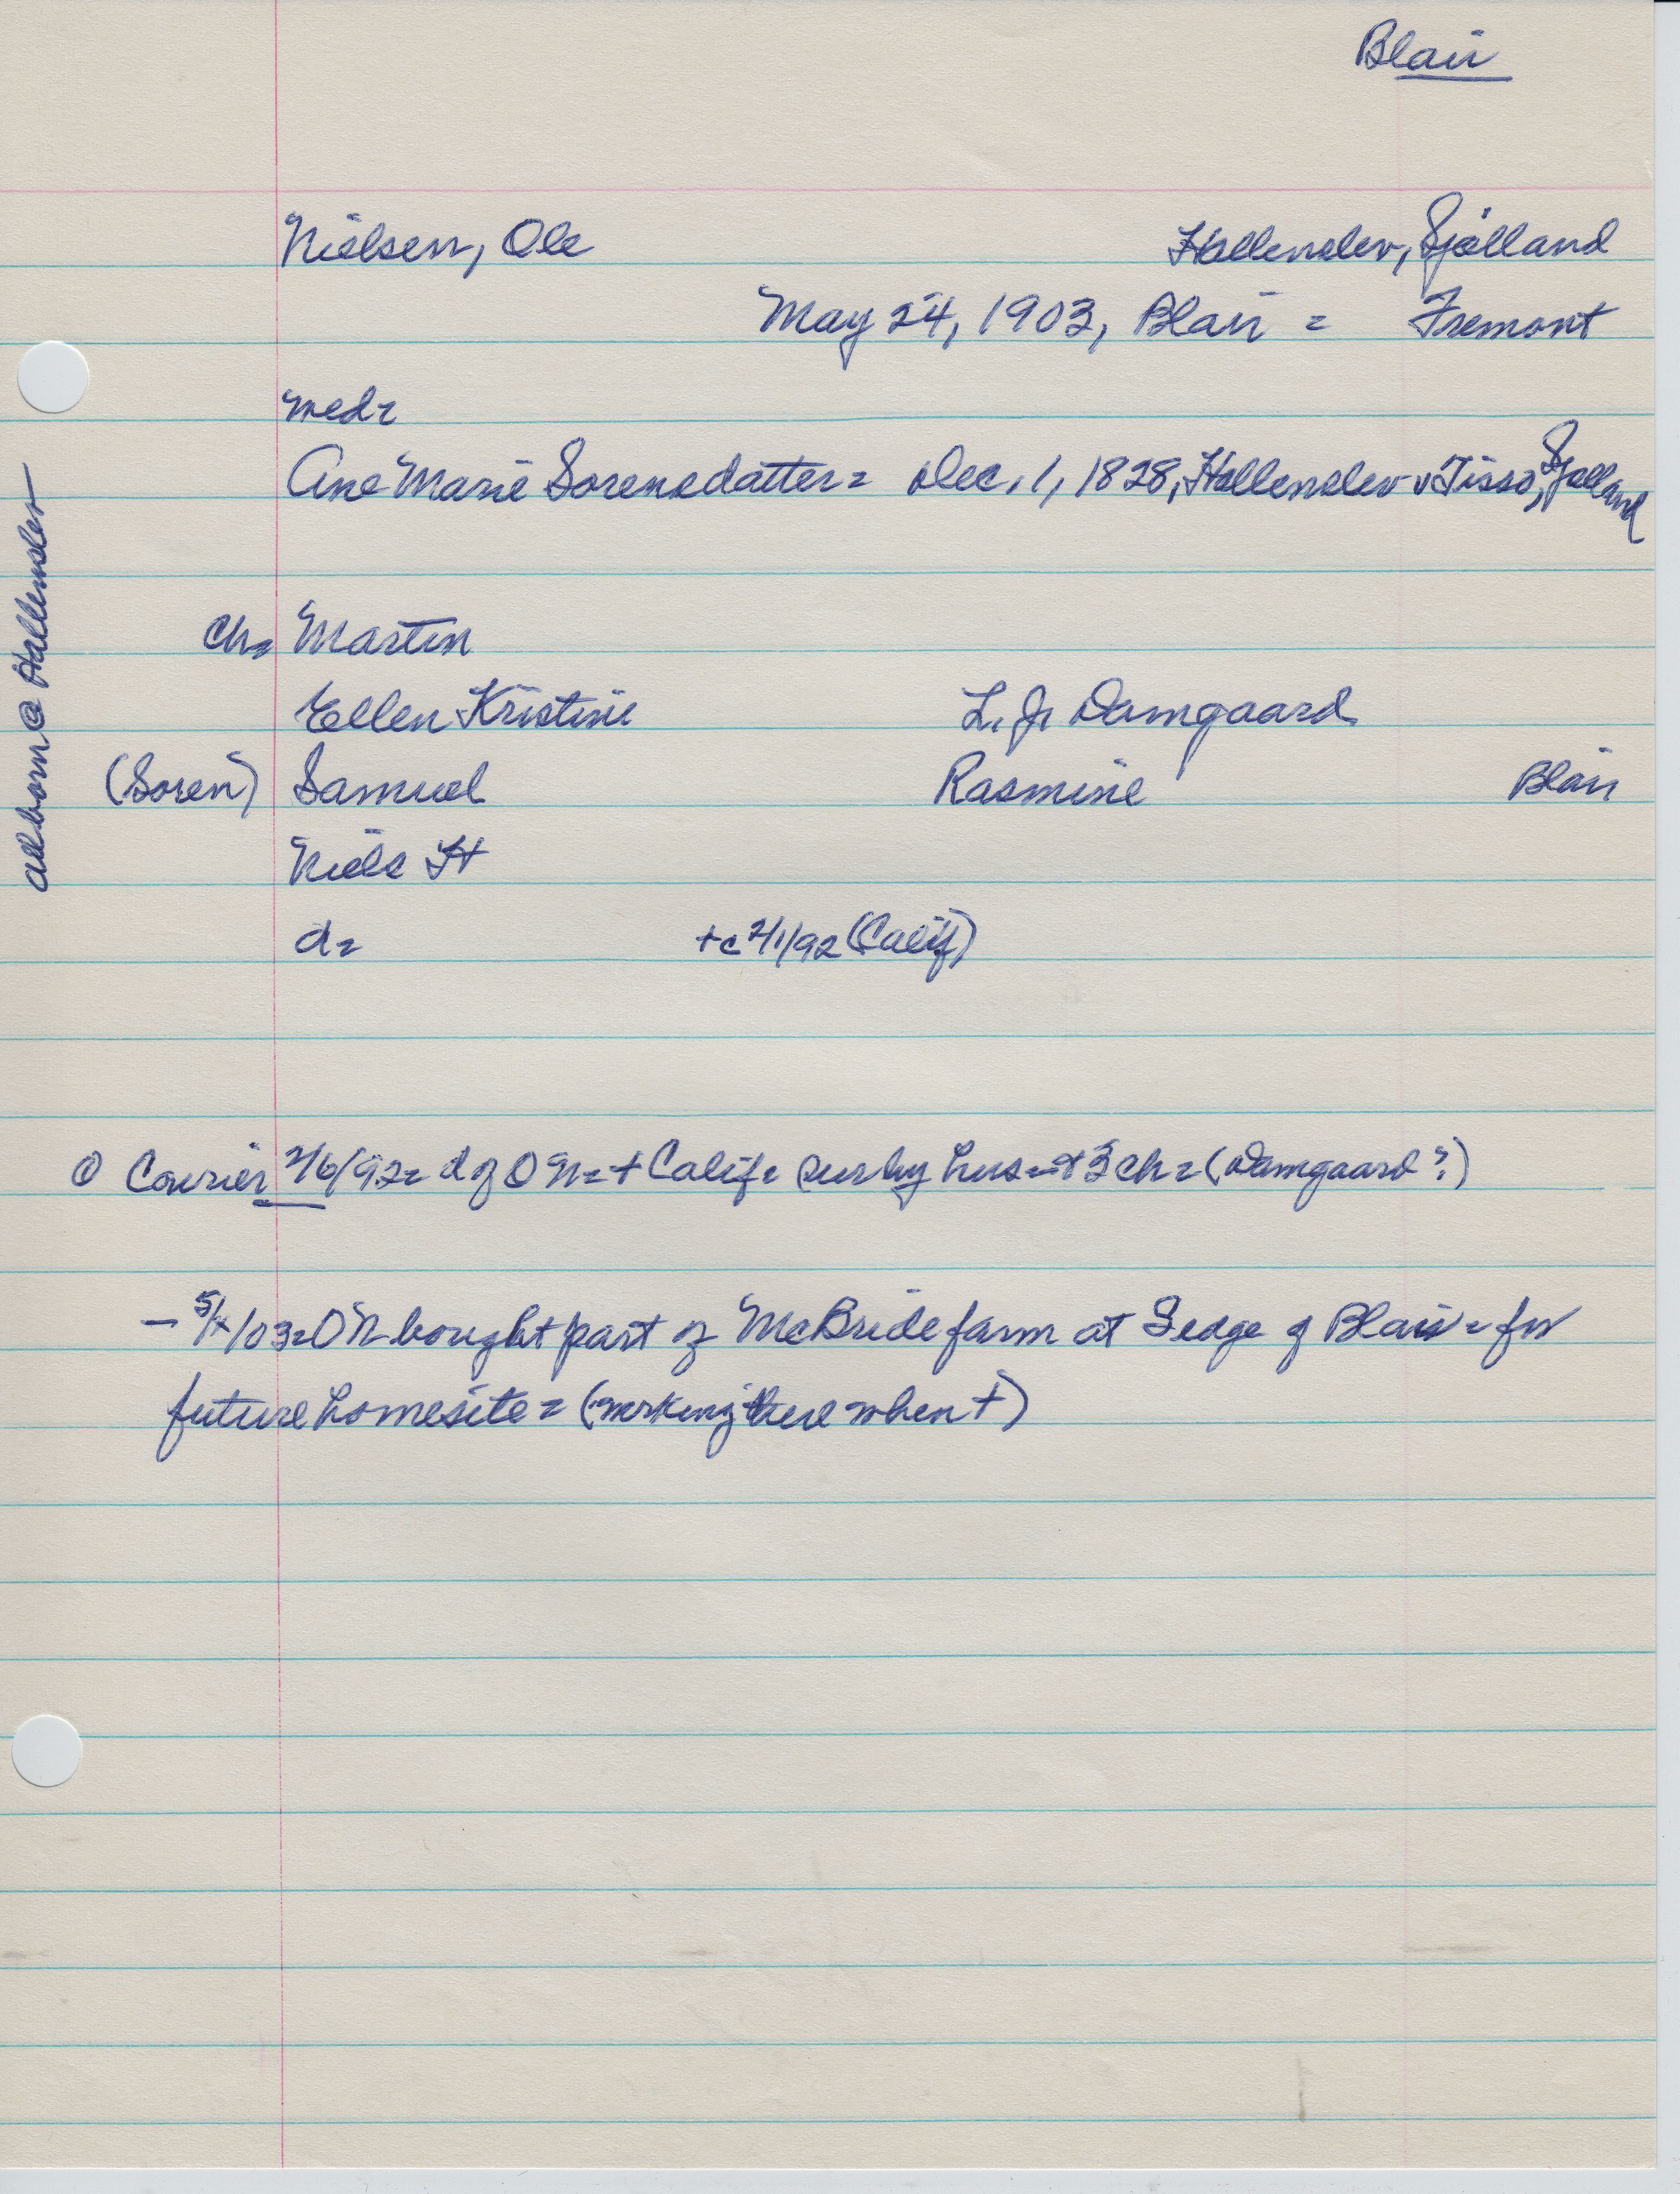 Blair
Nielsen, Ole Hallenslev, Sjælland
May 24, 1903, Blair = Fremont
med=
Ane Marie Sorensdatter = Dec. 1, 1828, Hallenslev v Tisso, Sjælland
all born @ Hallenslev
ch= Martin
Ellen Kristine L. J. Damgaard
(Soren) Samuel Rasmine Blair
Niels H
d= +c 2/1/92 (Calif)
Courier 2/6/92= d of O N= + Calif= sur by hus= + 3 ch= (Damgaard?)
— 5/ /03= O N bought part of McBride farm at S edge of Blair = for
future homesite = (working there when +)